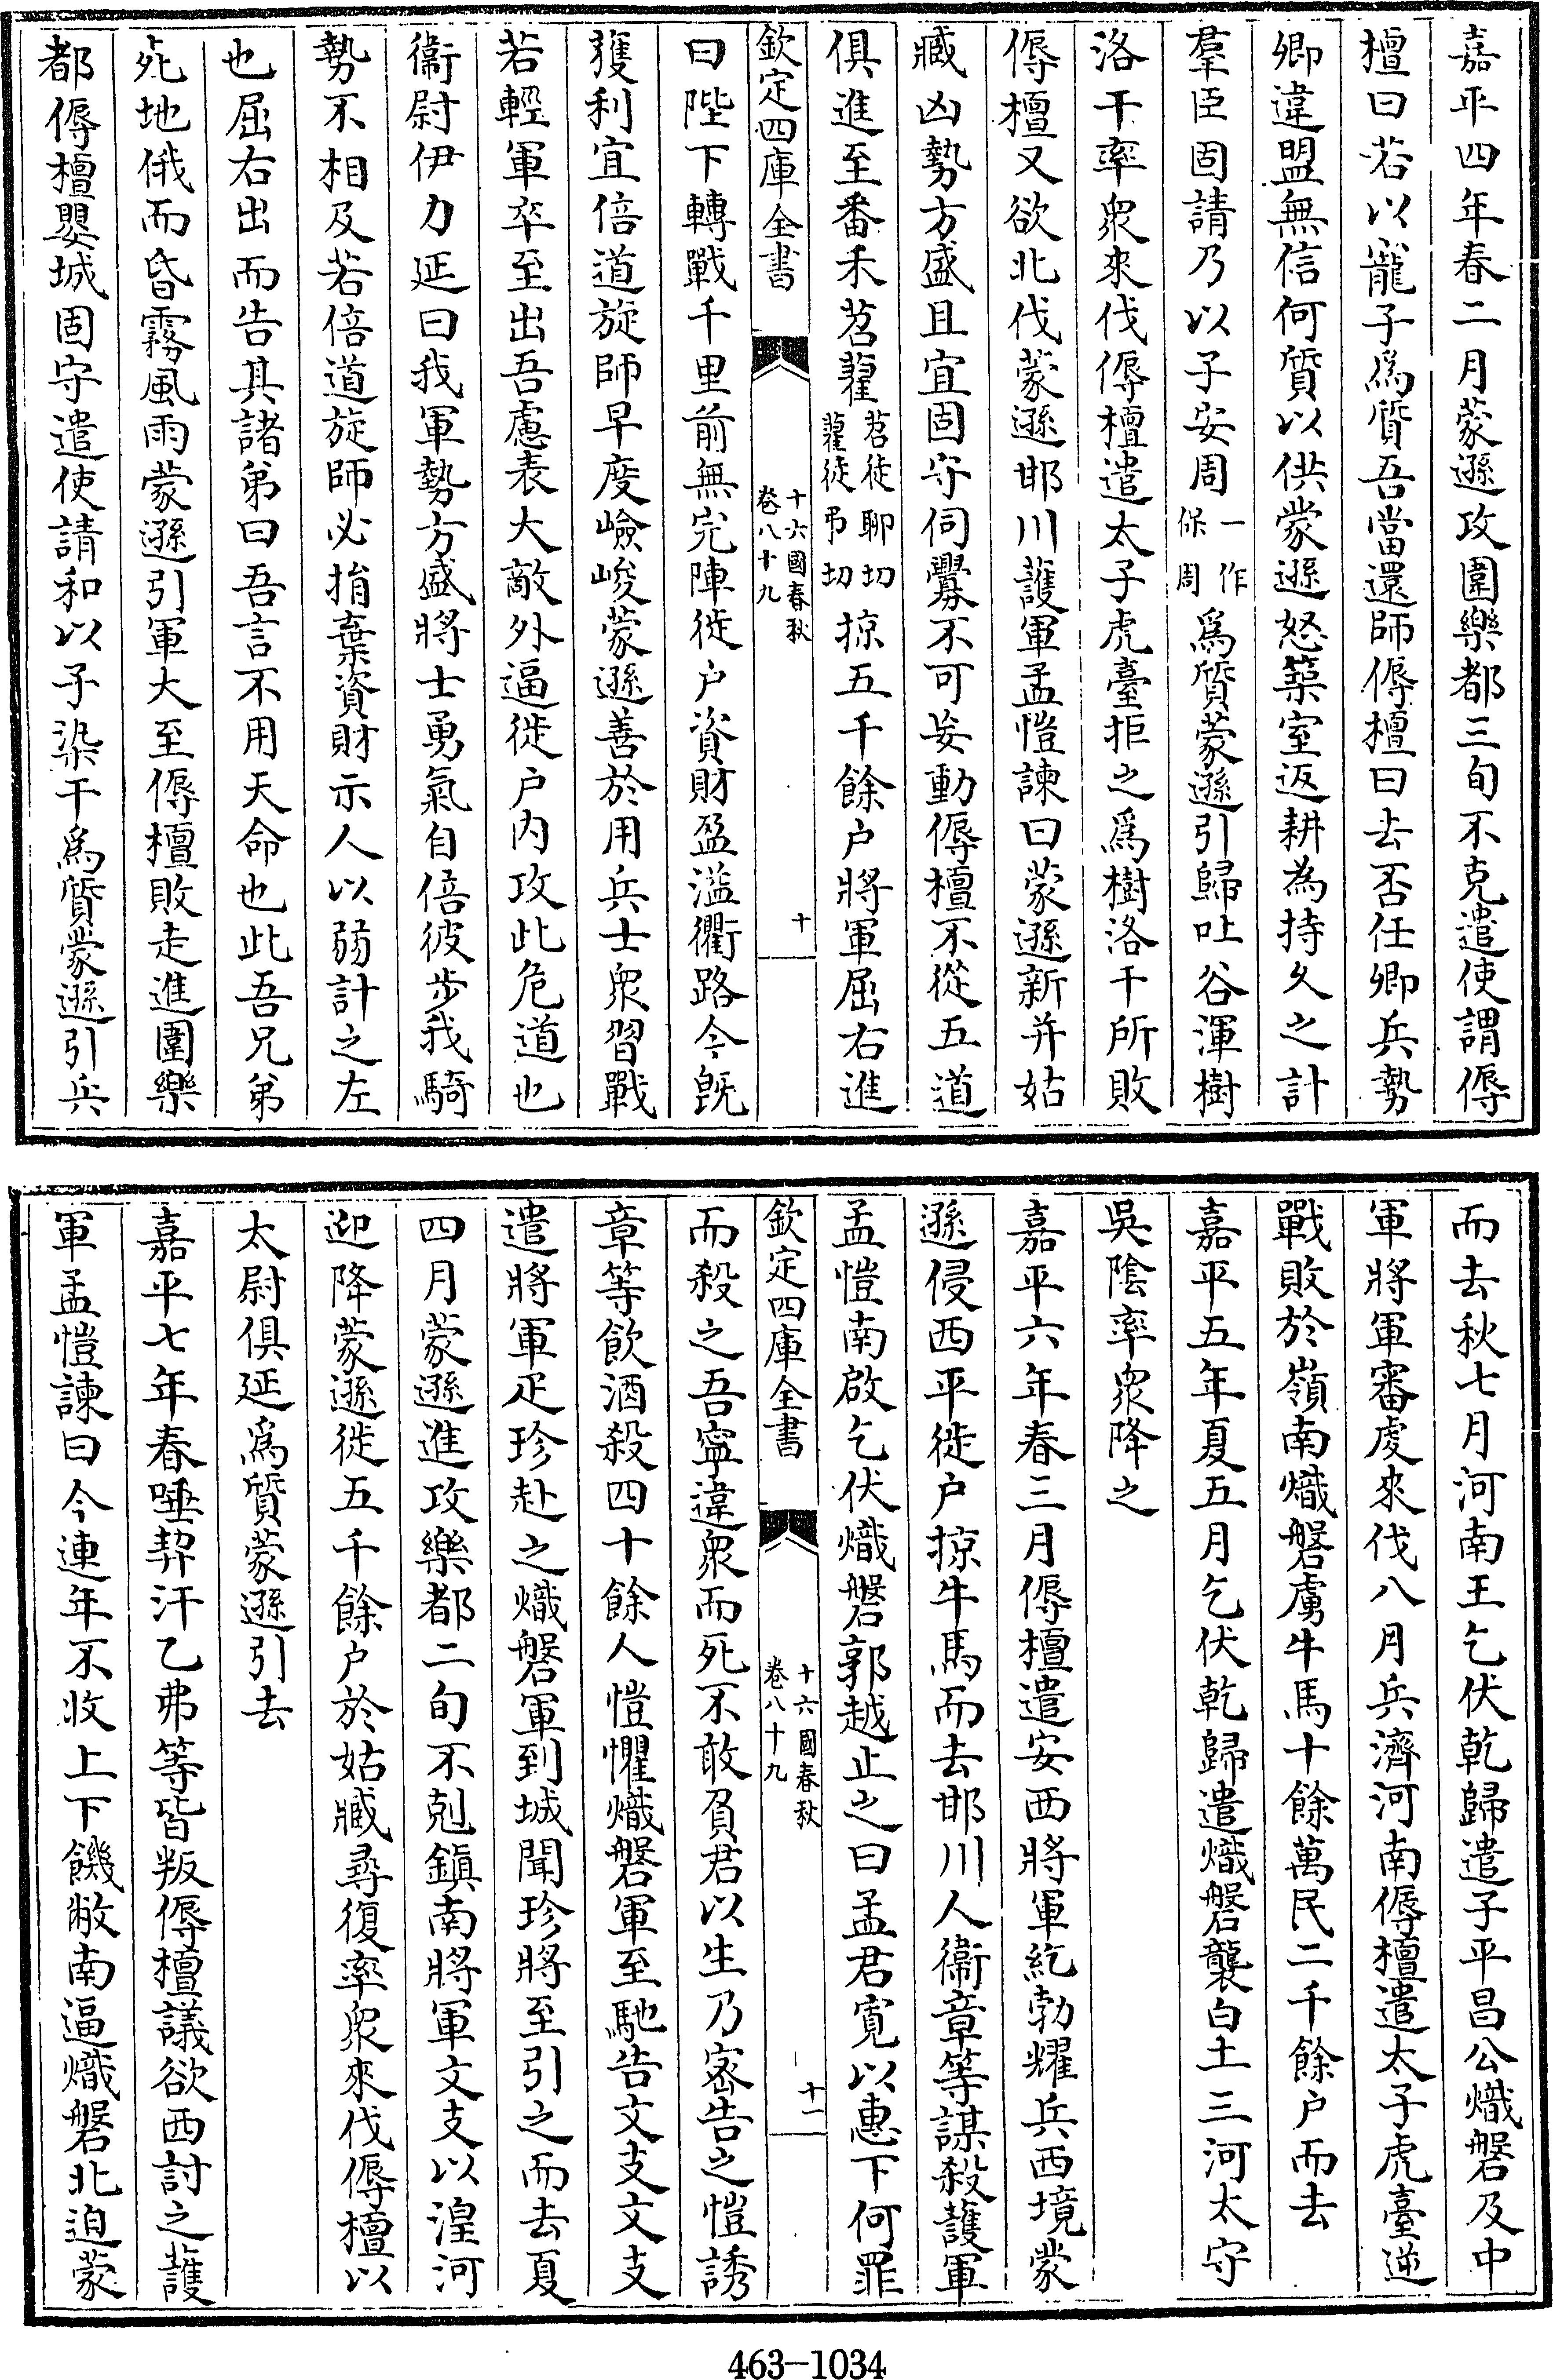 嘉平四年春二月蒙遜攻圍樂都三旬不克遣使謂傉
檀曰若以寵子爲質吾當還師傉檀曰去否任卿兵勢
卿違盟無信何質以供蒙遜怒築室返耕為持久之計
羣臣固請乃以子安周一作保周爲質蒙遜引歸吐谷渾樹
洛干率衆來伐傉檀遣太子虎臺拒之爲樹洛干所敗
傉檀又欲北伐蒙遜邯川護軍孟愷諫曰蒙遜新并姑
臧凶勢方盛且宜固守伺釁不可妄動傉檀不從五道
俱進至番禾苕藋苕徒聊切藋徒弔切掠五千餘户將軍屈右進
欽定四庫全書
十六國春秋
卷八十九
十
曰陛下轉戰千里前無完陣徙户資財盈溢衢路今既
獲利宜倍道旋師早度嶮峻蒙遜善於用兵士衆習戰
若輕軍卒至出吾慮表大敵外逼徙户内攻此危道也
衞尉伊力延曰我軍勢方盛將士勇氣自倍彼步我騎
勢不相及若倍道旋師必捐棄資財示人以弱計之左
也屈右出而告其諸弟曰吾言不用天命也此吾兄弟
死地俄而昏霧風雨蒙遜引軍大至傉檀敗走進圍樂
都傉檀嬰城固守遣使請和以子染干爲質蒙遜引兵
而去秋七月河南王乞伏乾歸遣子平昌公熾磐及中
軍將軍審虔來伐八月兵濟河南傉檀遣太子虎臺逆
戰敗於嶺南熾磐虜牛馬十餘萬民二千餘户而去
嘉平五年夏五月乞伏乾歸遣熾磐襲白土三河太守
吳陰率衆降之
嘉平六年春三月傉檀遣安西將軍紇勃耀兵西境蒙
遜侵西平徙户掠牛馬而去邯川人衞章等謀殺護軍
孟愷南啟乞伏熾磐郭越止之曰孟君寬以惠下何罪
欽定四庫全書
十六國春秋
卷八十九
十一
而殺之吾寧違衆而死不敢負君以生乃密告之愷誘
章等飲酒殺四十餘人愷懼熾磐軍至馳告文支文支
遣將軍疋珍赴之熾磐軍到城聞珍將至引之而去夏
四月蒙遜進攻樂都二旬不剋鎭南將軍文支以湟河
迎降蒙遜徙五千餘户於姑臧尋復率衆來伐傉檀以
太尉俱延爲質蒙遜引去
嘉平七年春唾契汗乙弗等皆叛傉檀議欲西討之護
軍孟愷諫曰今連年不收上下饑敝南逼熾磐北迫蒙
463-1034